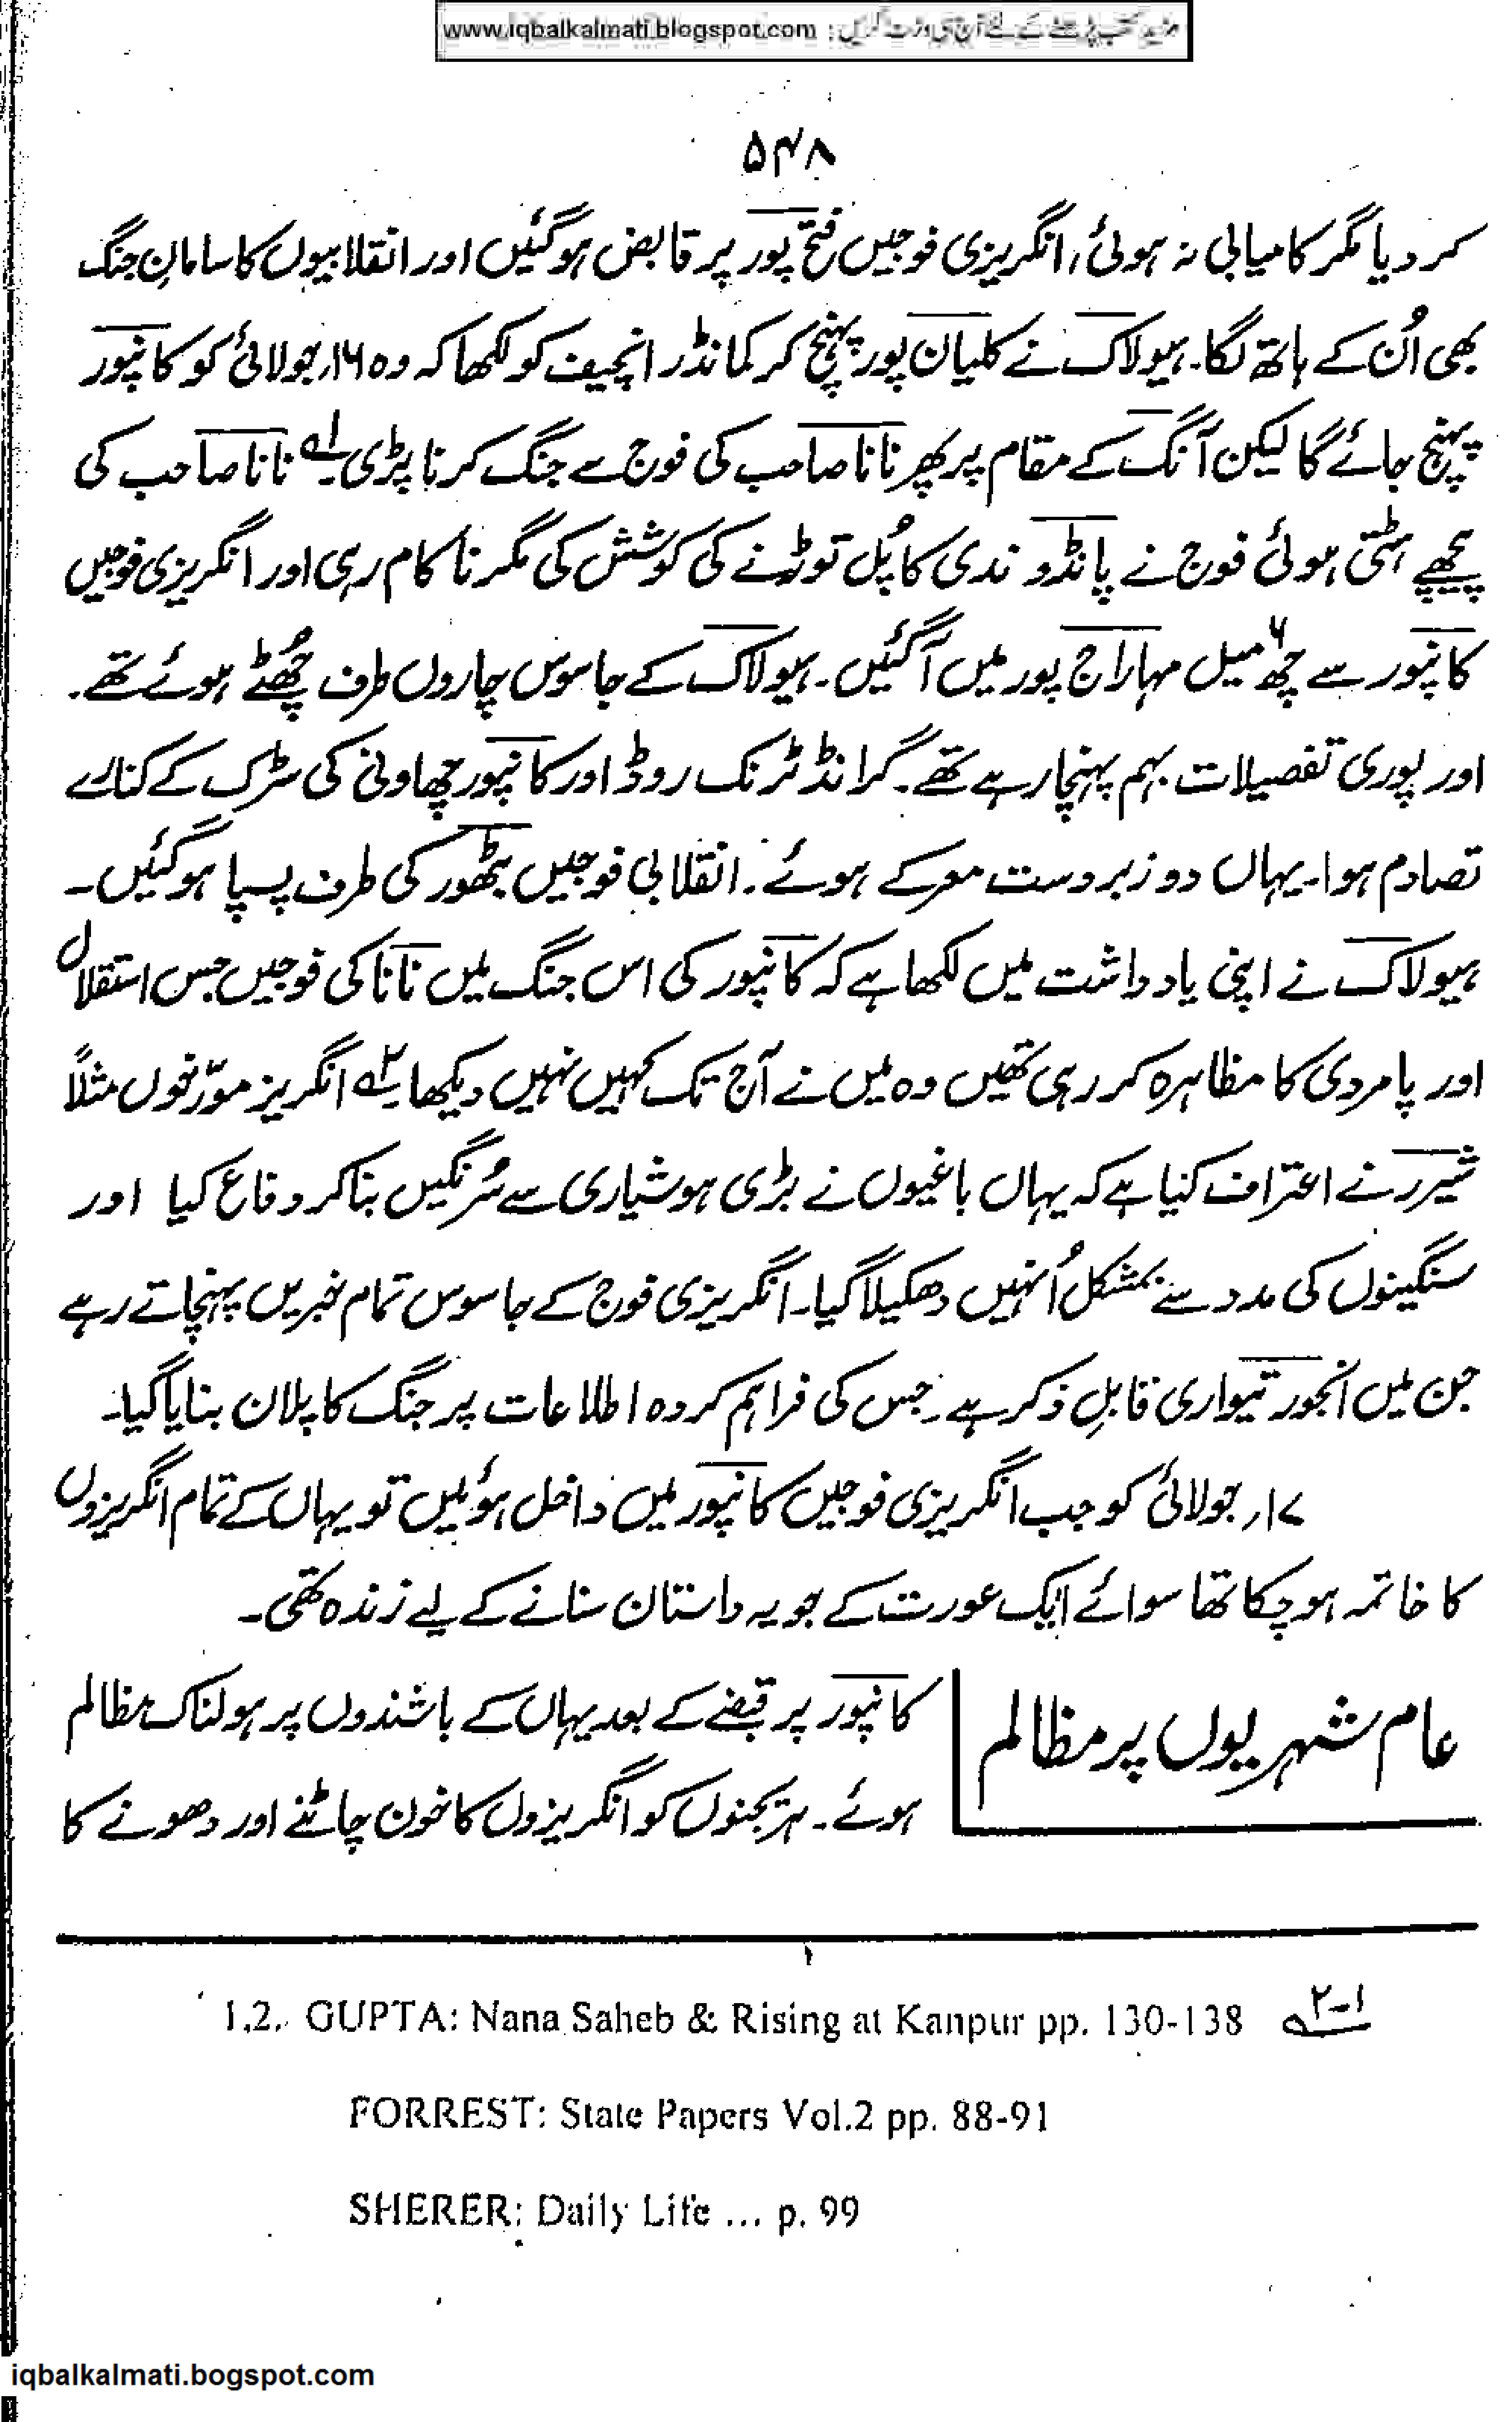 www.iqbalkalmati.blogspot.com : مزید کتب پڑھنے کے لئے آج ہی وزٹ کریں
۵۴۸
کر دیا مگر کامیابی نہ ہوئی، انگریزی فوجیں فتح پور پر قابض ہوگئیں اور انقلابیوں کا سامانِ جنگ
بھی اُن کے ہاتھ لگا۔ ہیولاک نے کلیان پور پہنچ کر کمانڈر انچیف کو لکھا کہ وہ ۱۶؍ جولائی کو کانپور
پہنچ جائے گا لیکن آنگ کے مقام پر پھر نانا صاحب کی فوج سے جنگ کرنا پڑی۔؂۱ نانا صاحب کی
پیچھے ہٹتی ہوئی فوج نے پانڈو ندی کا پُل توڑنے کی کوشش کی مگر ناکام رہی اور انگریزی فوجیں
کانپور سے چھ۶ میل مہاراج پور میں آگئیں۔ ہیولاک کے جاسوس چاروں طرف چھُٹے ہوئے تھے۔
اور پوری تفصیلات بہم پہنچا رہے تھے۔ گرانڈ ٹرنک روڈ اور کانپور چھاونی کی سڑک کے کنارے
تصادم ہوا۔ یہاں دو زبردست معرکے ہوئے۔ انقلابی فوجیں بٹھور کی طرف پسپا ہوگئیں۔
ہیولاک نے اپنی یاد داشت میں لکھا ہے کہ کانپور کی اس جنگ میں نانا کی فوجیں جس استقلال
اور پامردی کا مظاہرہ کر رہی تھیں وہ میں نے آج تک کہیں نہیں دیکھا۔؂۲ انگریز مورّخوں مثلاً
شیرر نے اعتراف کیا ہے کہ یہاں باغیوں نے بڑی ہوشیاری سے سُرنگیں بنا کر دفاع کیا اور
سنگینوں کی مدد سے بمشکل اُنہیں دھکیلا گیا۔ انگریزی فوج کے جاسوس تمام خبریں پہنچاتے رہے
جن میں انجور تیواری قابلِ ذکر ہے۔ جس کی فراہم کردہ اطلاعات پر جنگ کا پلان بنایا گیا۔
۱۷؍ جولائی کو جب انگریزی فوجیں کانپور میں داخل ہوئیں تو یہاں کے تمام انگریزوں
کا خاتمہ ہو چکا تھا سوائے ایک عورت کے جو یہ داستان سنانے کے لیے زندہ تھی۔
عام شہریوں پر مظالم
کانپور پر قبضے کے بعد یہاں کے باشندوں پر ہولناک مظالم
ہوئے۔ ہریجنوں کو انگریزوں کا خون چاٹنے اور دھونے کا
1,2. GUPTA: Nana Saheb & Rising at Kanpur pp. 130-138 ؂۱-۲
FORREST: State Papers Vol.2 pp. 88-91
SHERER: Daily Life ... p. 99
iqbalkalmati.bogspot.com